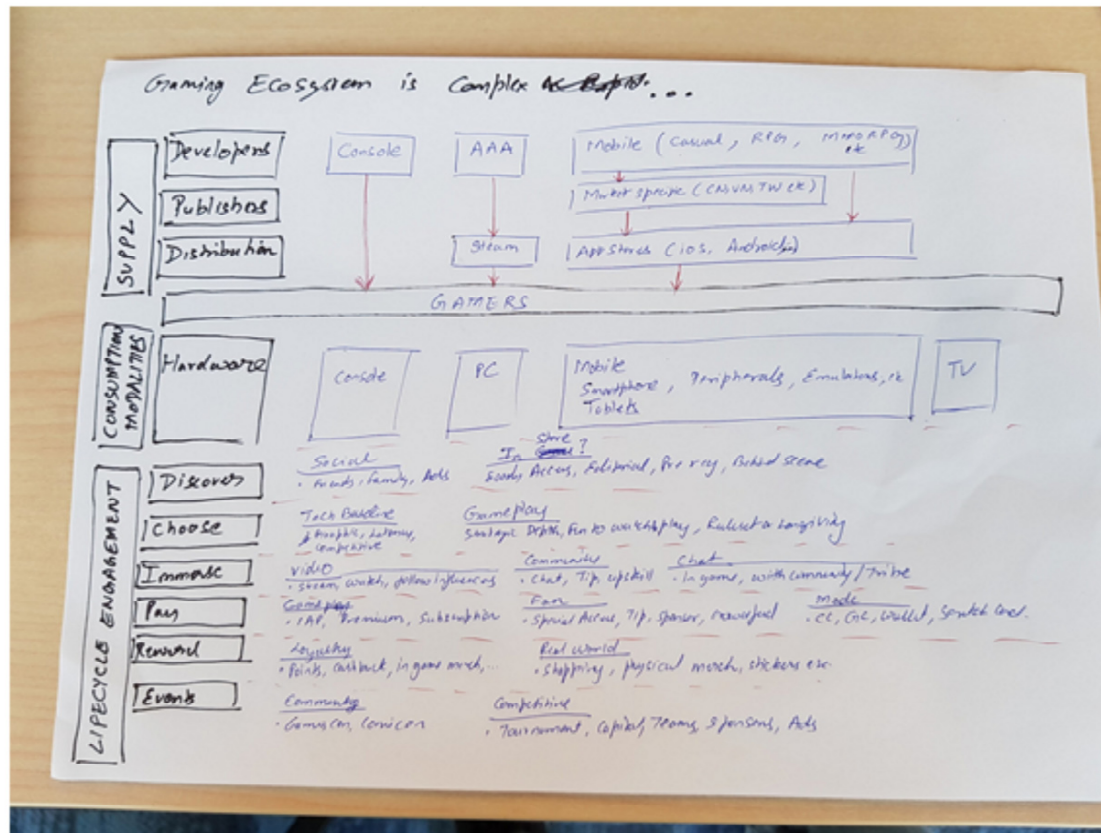 Gaming Ecosystem is Complex ...
SUPPLY
Developers
Console
AAA
Mobile (Casual, RPG, MMORPG, etc
Publishers
Market specific (CN, VN, TW etc)
Distribution
Steam
App Stores (ios, Android)
GAMERS
CONSUMPTION
MODALITIES
Hardware
Console
PC
Mobile
Smartphone, Peripherals, Emulators, etc
Tablets
TV
LIFECYCLE ENGAGEMENT
Discover
Social
• Friends, Family, Ads
In Store?
Early Access, Editorial, Pre reg, Behind scene
Choose
Tech Baseline
Graphic, Latency,
competitive
Gameplay
Strategic Depth, Fun to watch & play,
Immerse
Video
• Stream, watch, follow influencers
Community
• Chat, Tip, upskill
Chat
• In game, with community / Tribe
Pay
Gameplay
• IAP, Premium, Subscription
Fan
• Special Access, Tip, Sponsor,
Mode
• CC, GC, Wallet, Scratch Card.
Reward
Loyalty
• Points, Cashback, in game merch, ...
Real World
• Shopping, physical merch, stickers etc
Events
Community
• Gamescon, Comicon
Competitive
• Tournament, Capital, Teams, Sponsors, Ads